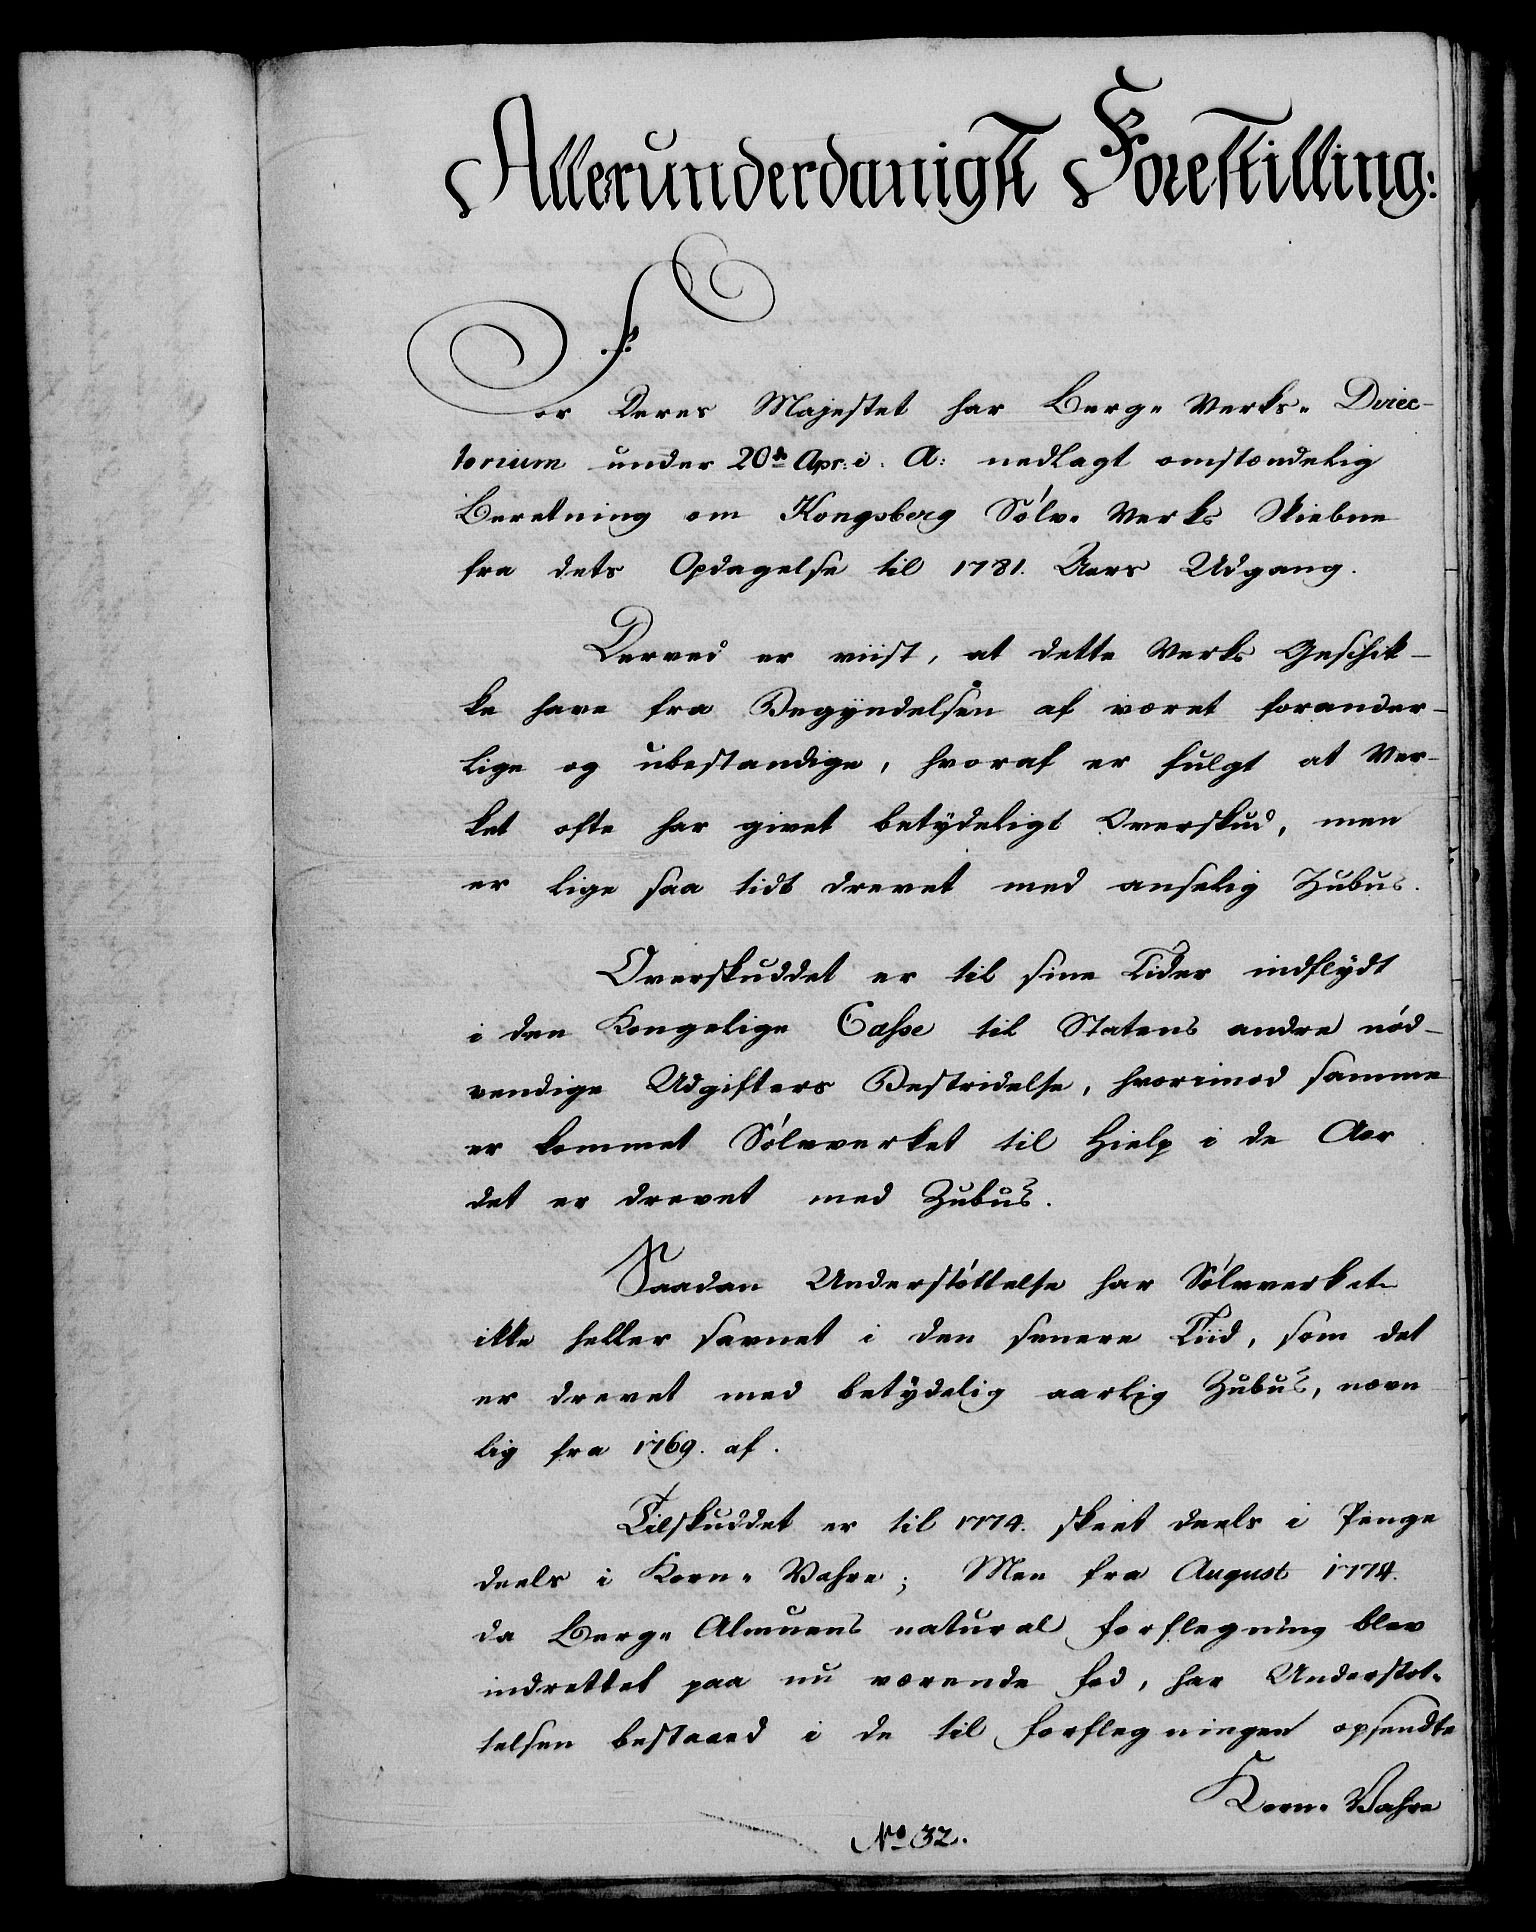 Allerunderdanigst Forestilling:
For Deres Majestet har Berg-Verks-Direc-
torium under 20de Apr: i. A: nedlagt omstændelig
Beretning om Kongsberg Sölv-Verks Skiebne
fra dets Opdagelse til 1781. Aars Udgang.
Derved er viist, at dette Verks Geschik-
ke have fra Begyndelsen af været forander-
lige og ubestandige, hvoraf er fulgt at Ver-
ket ofte har givet betydeligt Overskud, men
er lige saa tidt drevet med anselig Zubus.
Overskuddet er til sine Tider indflydt
i den Kongelige Casse til Statens andre nöd-
vendige Udgifters Bestridelse, hvorimod samme
er kommet Sölvverket til Hielp i de Aar
det er drevet med Zubus.
Saadan Understöttelse har Sölvverket
ikke heller savnet i den senere Tiid, som det
er drevet med betydelig aarlig Zubus, nævn
lig fra 1769. af.
Tilskuddet er til 1774. skeet deels i Penge
deels i Korn-Vahre; Men fra August 1774.
da Berg-Almuens natural forflegning blev
indrettet paa nu værende Fod, har Understöt-
telsen bestaaed i de til forflegningen opsendte
Korn-Vahre
No 32.